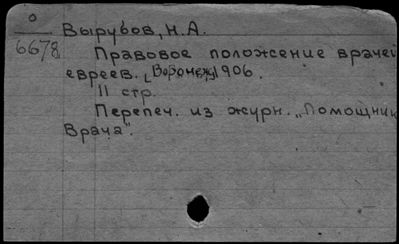 О
6678
Вырубов, Н.А.
Правовое положение врачей
евреев. [Воронеж] 1906.
11 стр.
Перепеч. из журн. „Помощник
Врача".